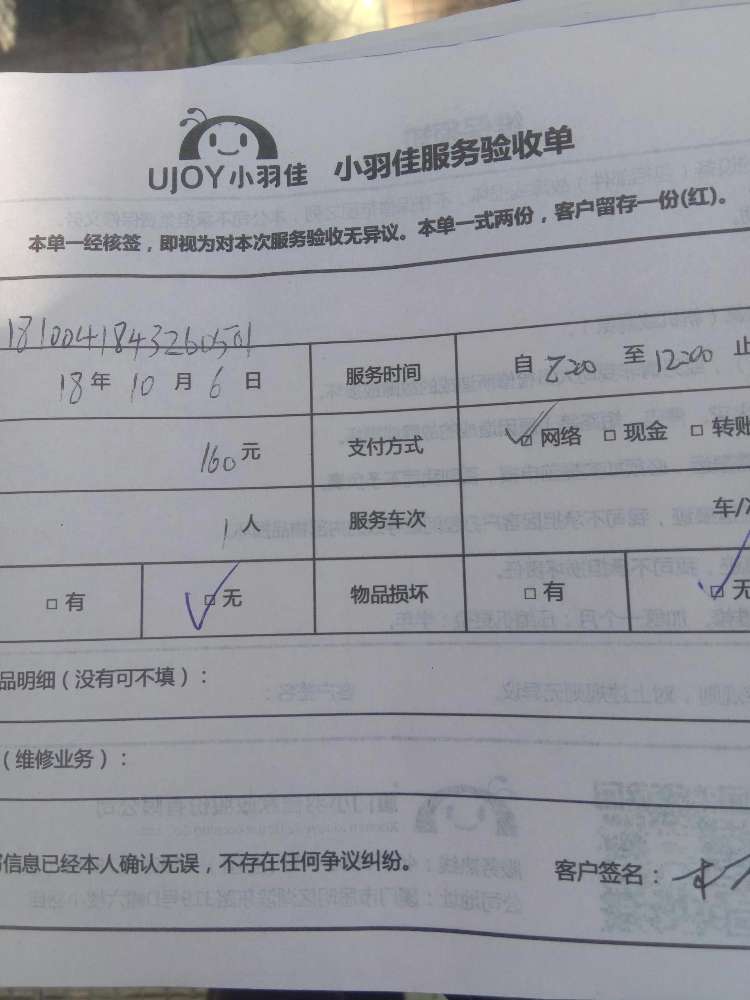 UJOY小羽佳 小羽佳服务验收单
本单一经核签，即视为对本次服务验收无异议。本单一式两份，客户留存一份(红)。
1810041843260501
18年10月6日 服务时间 自 8:00 至 12:00 止
160元 支付方式 ☑网络 □现金 □转账
1人 服务车次 车/
□有 ☑无 物品损坏 □有 ☑无
品明细（没有可不填）：
（维修业务）：
信息已经本人确认无误，不存在任何争议纠纷。 客户签名：